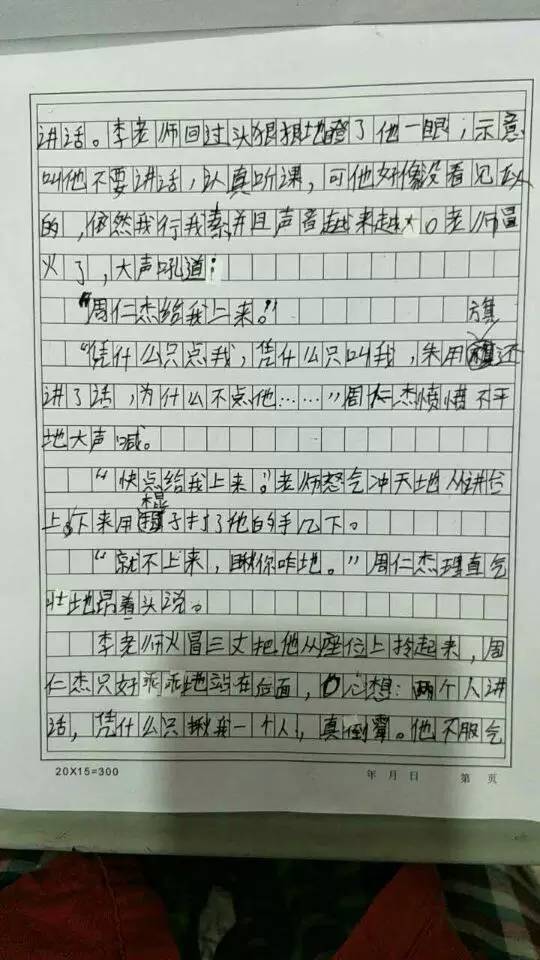 讲话。李老师回过头狠狠地瞪了他一眼；示意
叫他不要讲话，认真听课，可他好像没看见似
的，依然我行我素，并且声音越来越大。老师冒
火了，大声吼道：
“周仁杰给我上来。”
旗
“凭什么只点我，凭什么只叫我，朱用还
讲了话，为什么不点他……”周仁杰愤愤不平
地大声喊。
“快点给我上来。”老师怒气冲天地从讲台
棍
上下来用子打了他的手几下。
“就不上来，瞅你咋地。”周仁杰理直气
壮地昂着头说。
李老师火冒三丈把他从座位上拎起来，周
仁杰只好乖乖地站在后面，心想：两个人讲
话，凭什么只揪我一个人，真倒霉。他不服气
20X15=300 年 月 日 第 页